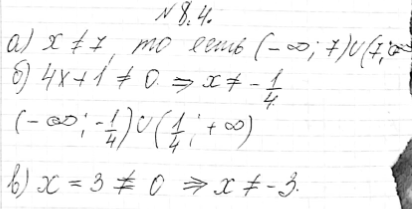 № 8.4.
а) x ≠ 7, то есть (-∞; 7)∪(7; ∞
б) 4x + 1 ≠ 0 ⇒ x ≠ -1/4
(-∞; -1/4)∪(1/4; +∞)
в) x = 3 ≠ 0 ⇒ x ≠ -3.